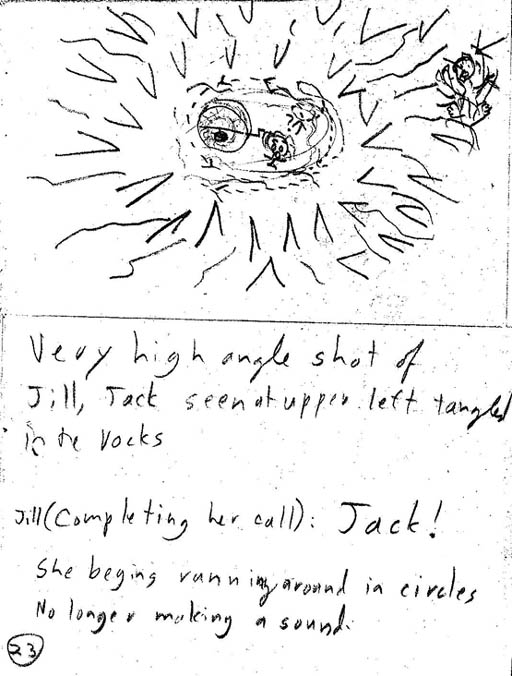 Very high angle shot of
Jill, Jack seen at upper left tangled
in the rocks
Jill (Completing her call): Jack!
She begins running around in circles
No longer making a sound.
23